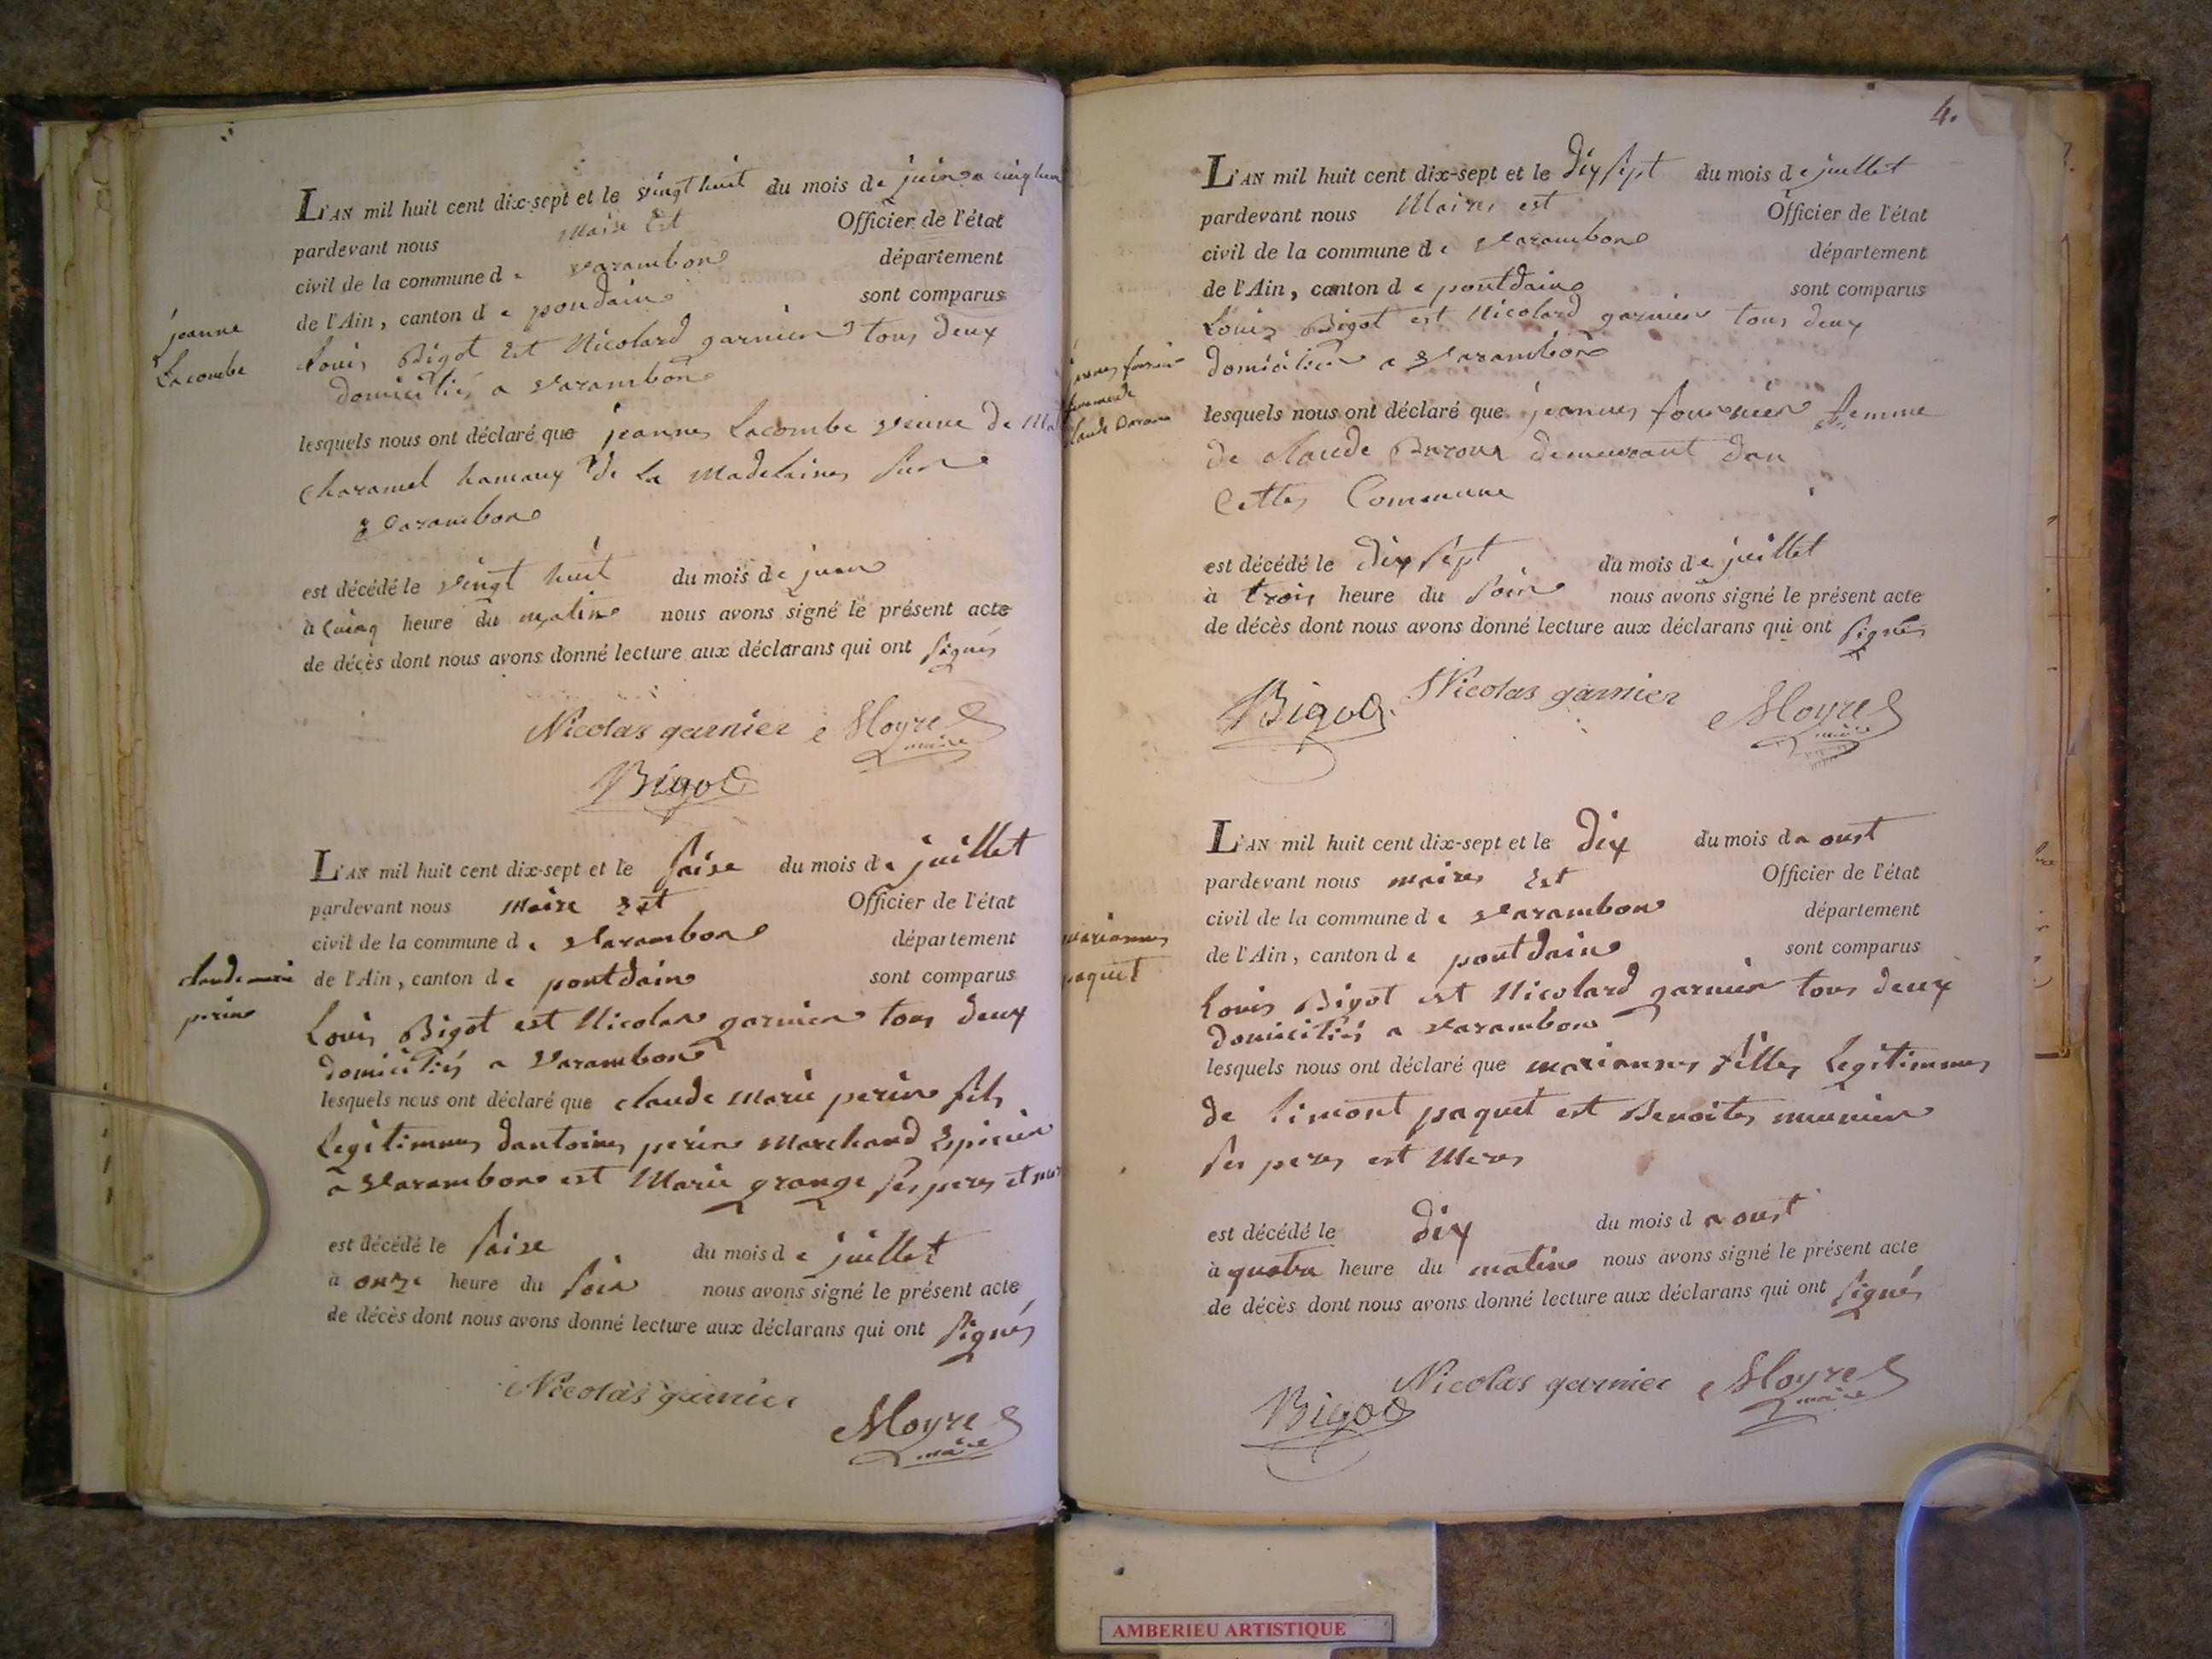 L'AN mil huit cent dix-sept et le vingt huit du mois de juin a cinq heu
pardevant nous maire Est Officier de l'état
civil de la commune de varambon département
de l'Ain, canton de pondain sont comparus
jeanne
Lacombe
Louis Bigot Est Nicolard garnier tous deux
domiciliés a varambon
lesquels nous ont déclaré que jeannes Lacombe veuve de
charamel hameaux de La Madelaines sur
varambon
est décédé le vingt huit du mois de juin
à cinq heure du matin nous avons signé le présent acte
de décès dont nous avons donné lecture aux déclarans qui ont signés
Nicolas garnier Moyret
maire
Bigot
L'AN mil huit cent dix-sept et le saise du mois de juillet
pardevant nous Maire Est Officier de l'état
civil de la commune de varambon département
claude marie
perin
de l'Ain, canton de pontdain sont comparus
Louis Bigot est Nicolas garnier tous deux
domiciliés a varambon
lesquels nous ont déclaré que claude Marie perin fils
Legitimmes dantoines perin Marchand Epicier
a varambon est Marie grange ses peres et
est décédé le saise du mois de juillet
à onze heure du soir nous avons signé le présent acte
de décès dont nous avons donné lecture aux déclarans qui ont signés
Nicolas garnier
Moyret
maire
4.
L'AN mil huit cent dix-sept et le dix sept du mois de juillet
pardevant nous Maires est Officier de l'état
civil de la commune de varambon département
de l'Ain, canton de pontdain sont comparus
Louis Bigot est Nicolard garnier tous deux
domiciliés a varambon
femme de
claude
lesquels nous ont déclaré que jeannes fournier femme
de claude demeurant dan
Cettes Commune
est décédé le dix sept du mois de juillet
à trois heure du soir nous avons signé le présent acte
de décès dont nous avons donné lecture aux déclarans qui ont signés
Bigot Nicolas garnier Moyret
maire
L'AN mil huit cent dix-sept et le dix du mois d aoust
pardevant nous maires Est Officier de l'état
civil de la commune de varambon département
mariannes
paquet
de l'Ain, canton de pontdain sont comparus
Louis Bigot est Nicolard garnier tous deux
domiciliés a varambon
lesquels nous ont déclaré que mariannes filles Legitimmes
de simont paquet est Benoites munier
ses peres est Meres
est décédé le dix du mois d aoust
à quatre heure du matin nous avons signé le présent acte
de décès dont nous avons donné lecture aux déclarans qui ont signés
Nicolas garnier Moyret
maire
Bigot
AMBERIEU ARTISTIQUE